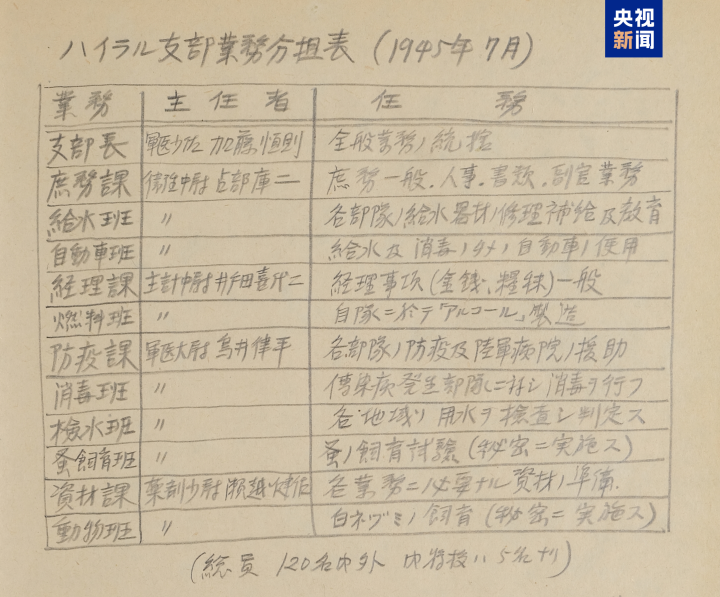 央视
新闻
ハイラル支部業務分担表(1945年7月)
業務 主任者 任務
支部長 軍医少佐 加藤恒則 全般業務ノ統括
庶務課 衛生中尉 占部庫二 庶務一般、人事、書類、副官業務
給水班 〃 各部隊ノ給水器材ノ修理補給及教育
自動車班 〃 給水及消毒ノタメノ自動車ノ使用
経理課 主計中尉 井田喜代二 経理事項(金錢、糧秣)一般
燃料班 〃 自隊ニ於テ「アルコール」製造
防疫課 軍医大尉 鳥井偉平 各部隊ノ防疫及陸軍病院ノ援助
消毒班 〃 傳染病発生部隊ニ対シ消毒ヲ行フ
檢水班 〃 各地域ノ用水ヲ検査シ判定ス
蚤飼育班 〃 蚤ノ飼育試験(秘密ニ実施ス)
資材課 薬剤少尉 瀬越 各業務ニ必要ナル資材ノ準備
動物班 〃 白ネヅミノ飼育(秘密ニ実施ス)
(総員 120名内外 内将校ハ5名ナリ)